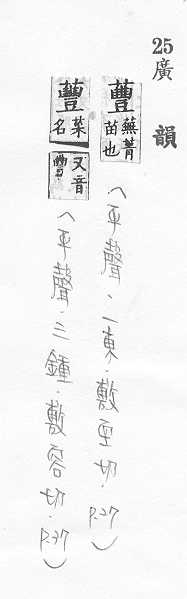 25 廣韻
蘴 蕪菁苗也 (平聲．一東．敷空切．P.27)
蘴 菜名又音豐 (平聲．三鍾．敷容切．P.37)